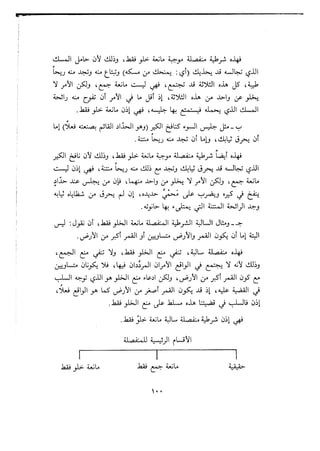 فهذه شرطية منفصلة موجبة مانعة خلو فقط، وذلك لأن حامل المسك
الذي تجالسه قد يحذيك (أي: يمنحك من مسكه) وتبتاع منه وتجد منه ريحًا
طيبة، كل هذه الثلاثة قد تجتمع، فهي ليست مانعة جمع، ولكن الأمر لا
يخلو عن واحد من هذه الثلاثة، إذ أقل ما في الأمر أن تفوح منه رائحة
المسك الذي يحمله ويستمتع بها جليسه، فهي إذن مانعة خلو فقط.
ب - مثل جليس السوء كنافخ الكير (وهو الحداد القائم بصنعته فعلًا) إما
أن يحرق ثيابك، وإما أن تجد منه ريحًا منتنة.
فهذه أيضًا شرطية منفصلة موجبة مانعة خلو فقط، وذلك لأن نافخ الكير
الذي تجالسه قد يحرق ثيابك مع ذلك وتجد منه ريحًا منتنة، إذن فهي ليست
مانعة جمع، ولكن الأمر لا يخلو من واحد منهما، فإن من يجلس عند حداد
ينفخ في كيره ويضرب على مُحْمَى حديده، إن لم يحرق من شظاياه ثيابه
وجد الرائحة المنتنة التي يمتلىء بها حانوته.
جـ - ومثال السالبة الشرطية المنفصلة المانعة الخلو فقط، أن نقول: ليس
البتة إما أن يكون القمر والأرض متساويين أو القمر أكبر من الأرض.
فهذه منفصلة سالبة، وهي تنفي الخلو فقط، ولا تنفي منع الجمع،
وذلك لأنه لا يجتمع في الواقع الأمران المردّد بينهما، فلا يكونان متساويين
مع كون القمر أكبر من الأرض، ولكن ادعاء منع الخلو هو الذي توجه لسلب
القضية في عليه، إذ قد يكون القمر أصغر من الأرض كما هو الواقع فعلًا،
إذن فالسلب في قضيتنا هذه مسلط على منع الخلو فقط.
فهي إذن شرطية منفصلة سالبة مانعة خلوٍّ فقط.
الأقسام الرئيسية للمنفصلة
حقيقية مانعة جمع فقط مانعة خلو فقط
١٠٠